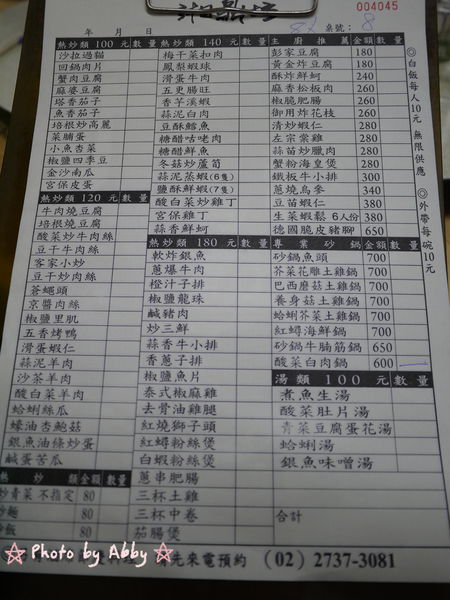 004045
年 月 日 桌號: 8
熱炒類 100 元 數量
沙拉過貓
回鍋肉片
蟹肉豆腐
麻婆豆腐
塔香茄子
魚香茄子
培根炒高麗
菜脯蛋
小魚杏菜
椒鹽四季豆
金沙南瓜
宮保皮蛋
熱炒類 120 元 數量
牛肉燒豆腐
培根燒豆腐
酸菜炒牛肉絲
豆干牛肉絲
客家小炒
豆干炒肉絲
蒼蠅頭
京醬肉絲
椒鹽里肌
五香烤鴨
滑蛋蝦仁
蒜泥羊肉
沙茶羊肉
酸白菜羊肉
蛤蜊絲瓜
蠔油杏鮑菇
銀魚油條炒蛋
鹹蛋苦瓜
熱炒類 金額 數量
炒青菜 不指定 80
炒麵 80
炒飯 80
熱炒類 140 元 數量
梅干菜扣肉
鳳梨蝦球
滑蛋牛肉
五更腸旺
香芋溪蝦
蒜泥白肉
豆酥鱈魚
糖醋咕咾肉
糖醋鮮魚
冬菇炒蘆筍
蒜泥蒸蝦(6隻)
鹽酥鮮蝦(7隻)
酸白菜炒雞丁
宮保雞丁
蒜香鮮蚵
熱炒類 180 元 數量
軟炸銀魚
蔥爆牛肉
橙汁子排
椒鹽龍珠
鹹豬肉
炒三鮮
蒜香牛小排
香蔥子排
椒鹽魚片
泰式椒麻雞
去骨油雞腿
紅燒獅子頭
紅蟳粉絲煲
白蝦粉絲煲
蔥串肥腸
三杯土雞
三杯中卷
茄腸煲
主廚推薦 金額 數量
彭家豆腐 180
黃金炸豆腐 180
酥炸鮮蚵 240
麻香松板肉 260
椒脆肥腸 260
御用炸花枝 260
清炒蝦仁 280
左宗棠雞 280
蒜苗炒臘肉 280
蟹粉海皇煲 280
鐵板牛小排 300
蔥燒烏參 340
豆苗蝦仁 380
生菜蝦鬆 6人份 380
德國脆皮豬腳 650
專業砂鍋 金額 數量
砂鍋魚頭 700
芥菜花雕土雞鍋 700
巴西蘑菇土雞鍋 700
養身菇土雞鍋 700
蛤蜊芥菜土雞鍋 700
紅蟳海鮮鍋 700
砂鍋牛腩筋鍋 650
酸菜白肉鍋 600
湯類 100 元 數量
煮魚生湯
酸菜肚片湯
青菜豆腐蛋花湯
蛤蜊湯
銀魚味噌湯
合計
◎白飯每人10元 無限供應
◎外帶每碗10元
先來電預約 (02) 2737-3081
Photo by Abby